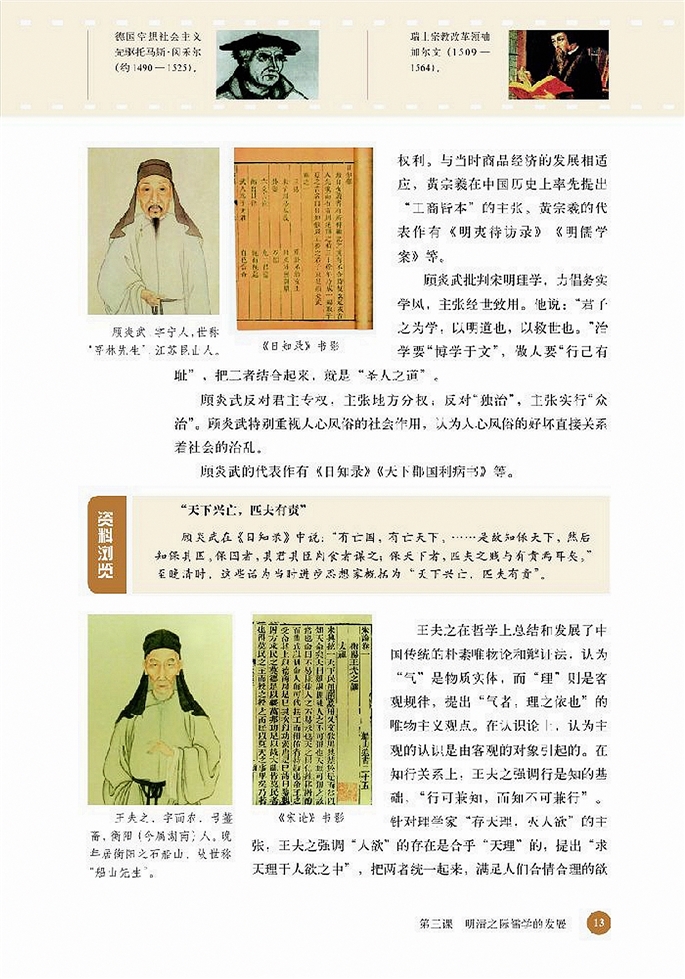 德国空想社会主义
先驱托马斯·闵采尔
(约1490—1525)。
瑞士宗教改革领袖
加尔文(1509—
1564)。
权利。与当时商品经济的发展相适
应，黄宗羲在中国历史上率先提出
“工商皆本”的主张。黄宗羲的代
表作有《明夷待访录》《明儒学
案》等。
顾炎武批判宋明理学，力倡务实
学风，主张经世致用。他说：“君子
之为学，以明道也，以救世也。”治
学要“博学于文”，做人要“行己有
耻”，把二者结合起来，就是“圣人之道”。
顾炎武，字宁人，世称
“亭林先生”，江苏昆山人。
《日知录》书影
顾炎武反对君主专权，主张地方分权；反对“独治”，主张实行“众
治”。顾炎武特别重视人心风俗的社会作用，认为人心风俗的好坏直接关系
着社会的治乱。
顾炎武的代表作有《日知录》《天下郡国利病书》等。
资料浏览
“天下兴亡，匹夫有责”
顾炎武在《日知录》中说：“有亡国，有亡天下。……是故知保天下，然后
知保其国。保国者，其君其臣肉食者谋之；保天下者，匹夫之贱与有责焉耳矣。”
至晚清时，这些话为当时进步思想家概括为“天下兴亡，匹夫有责”。
王夫之在哲学上总结和发展了中
国传统的朴素唯物论和辩证法，认为
“气”是物质实体，而“理”则是客
观规律，提出“气者，理之依也”的
唯物主义观点。在认识论上，认为主
观的认识是由客观的对象引起的。在
知行关系上，王夫之强调行是知的基
础，“行可兼知，而知不可兼行”。
针对理学家“存天理，灭人欲”的主
张，王夫之强调“人欲”的存在是合乎“天理”的，提出“求
天理于人欲之中”，把两者统一起来，满足人们合情合理的欲
王夫之，字而农，号薑
斋，衡阳(今属湖南)人。晚
年居衡阳之石船山，故世称
“船山先生”。
《宋论》书影
第三课 明清之际儒学的发展 13